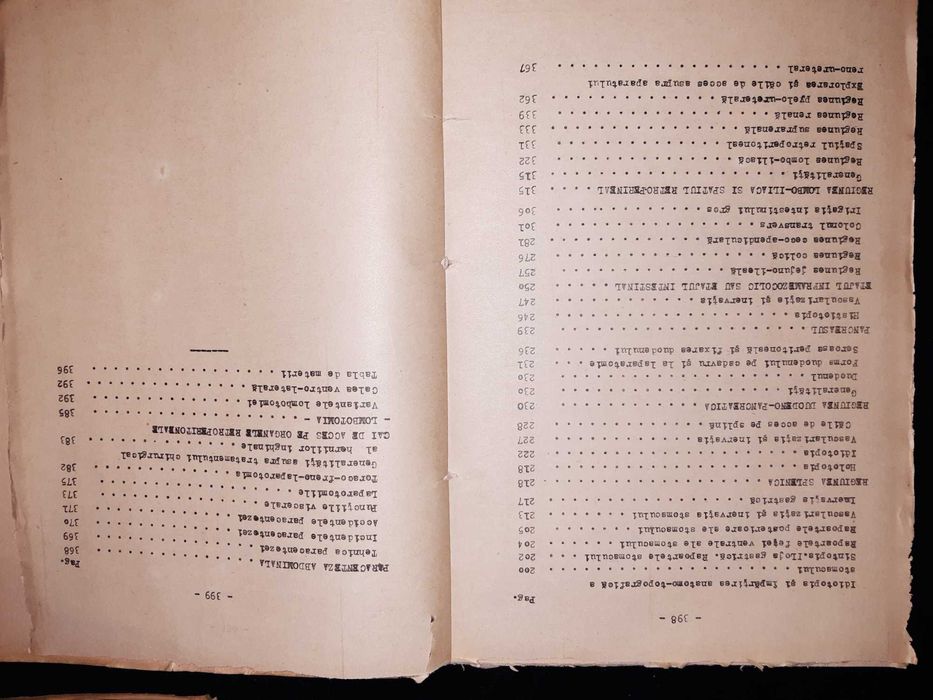 - 398 -
Pag.
Idiotopia şi împărţirea anatomo-topografică a
stomacului . . . . . . . . . . . . . . . . 200
Sintopia.Iloja gastrică. Rapoartele stomacului 202
Rapoartele feţei ventrale ale stomacului . . . 204
Rapoartele posterioare ale stomacului . . . . 205
Vascularizaţia şi inervaţia stomacului . . . . 213
Inervaţia gastrică . . . . . . . . . . . . . 217
REGIUNEA SPLENICA . . . . . . . . . . . . . 218
Holotopia . . . . . . . . . . . . . . . . . 218
Idiotopia . . . . . . . . . . . . . . . . . 222
Vascularizaţia şi inervaţia . . . . . . . . . 227
Căile de acces pe splină . . . . . . . . . . 228
REGIUNEA DUODENO-PANCREATICA . . . . . . . . 230
Generalităţi . . . . . . . . . . . . . . . . 230
Duodenul . . . . . . . . . . . . . . . . . . 230
Forma duodenului pe cadavru şi la laparatomie . 231
Seroasa peritoneală şi fixarea duodenului . . 236
PANCREASUL . . . . . . . . . . . . . . . . . 239
Histiotopia . . . . . . . . . . . . . . . . 246
Vascularizaţia şi inervaţia . . . . . . . . . 247
ETAJUL INFRAMEZOCOLIC SAU ETAJUL INTESTINAL . 250
Regiunea jejuno-ileală . . . . . . . . . . . 257
Regiunea colică . . . . . . . . . . . . . . 276
Regiunea ceco-apendiculară . . . . . . . . . 281
Colonul transvers . . . . . . . . . . . . . 301
Irigaţia intestinului gros . . . . . . . . . 306
REGIUNEA LOMBO-ILIACA SI SPATIUL RETRO-PERINEAL . . . . . 315
Generalităţi . . . . . . . . . . . . . . . . 315
Regiunea lombo-iliacă . . . . . . . . . . . 322
Spaţiul retroperitoneal . . . . . . . . . . 331
Regiunea suprarenală . . . . . . . . . . . . 333
Regiunea renală . . . . . . . . . . . . . . 339
Regiunea pyelo-ureterală . . . . . . . . . . 362
Explorarea şi căile de acces asupra aparatului
reno-ureteral . . . . . . . . . . . . . . . 367
- 399 -
Pag.
PARACENTEZA ABDOMINALA . . . . . . . . . . .
Tehnica paracentezei . . . . . . . . . . . . 368
Incidentele paracentezei . . . . . . . . . . 369
Accidentele paracentezei . . . . . . . . . . 370
Puncţiile viscerale . . . . . . . . . . . . 371
Laparotomiile . . . . . . . . . . . . . . . 373
Toraco-freno-laparotomia . . . . . . . . . . 375
Generalităţi asupra tratamentului chirurgical 382
al herniilor inghinale . . . . . . . . . . . 383
CAI DE ACCES PE ORGANELE RETROPERITONEALE
- LOMBOTOMIA - . . . . . . . . . . . . . . . 385
Variantele lombotomiei . . . . . . . . . . . 392
Calea ventro-laterală . . . . . . . . . . . 392
Tabla de materii . . . . . . . . . . . . . . 396